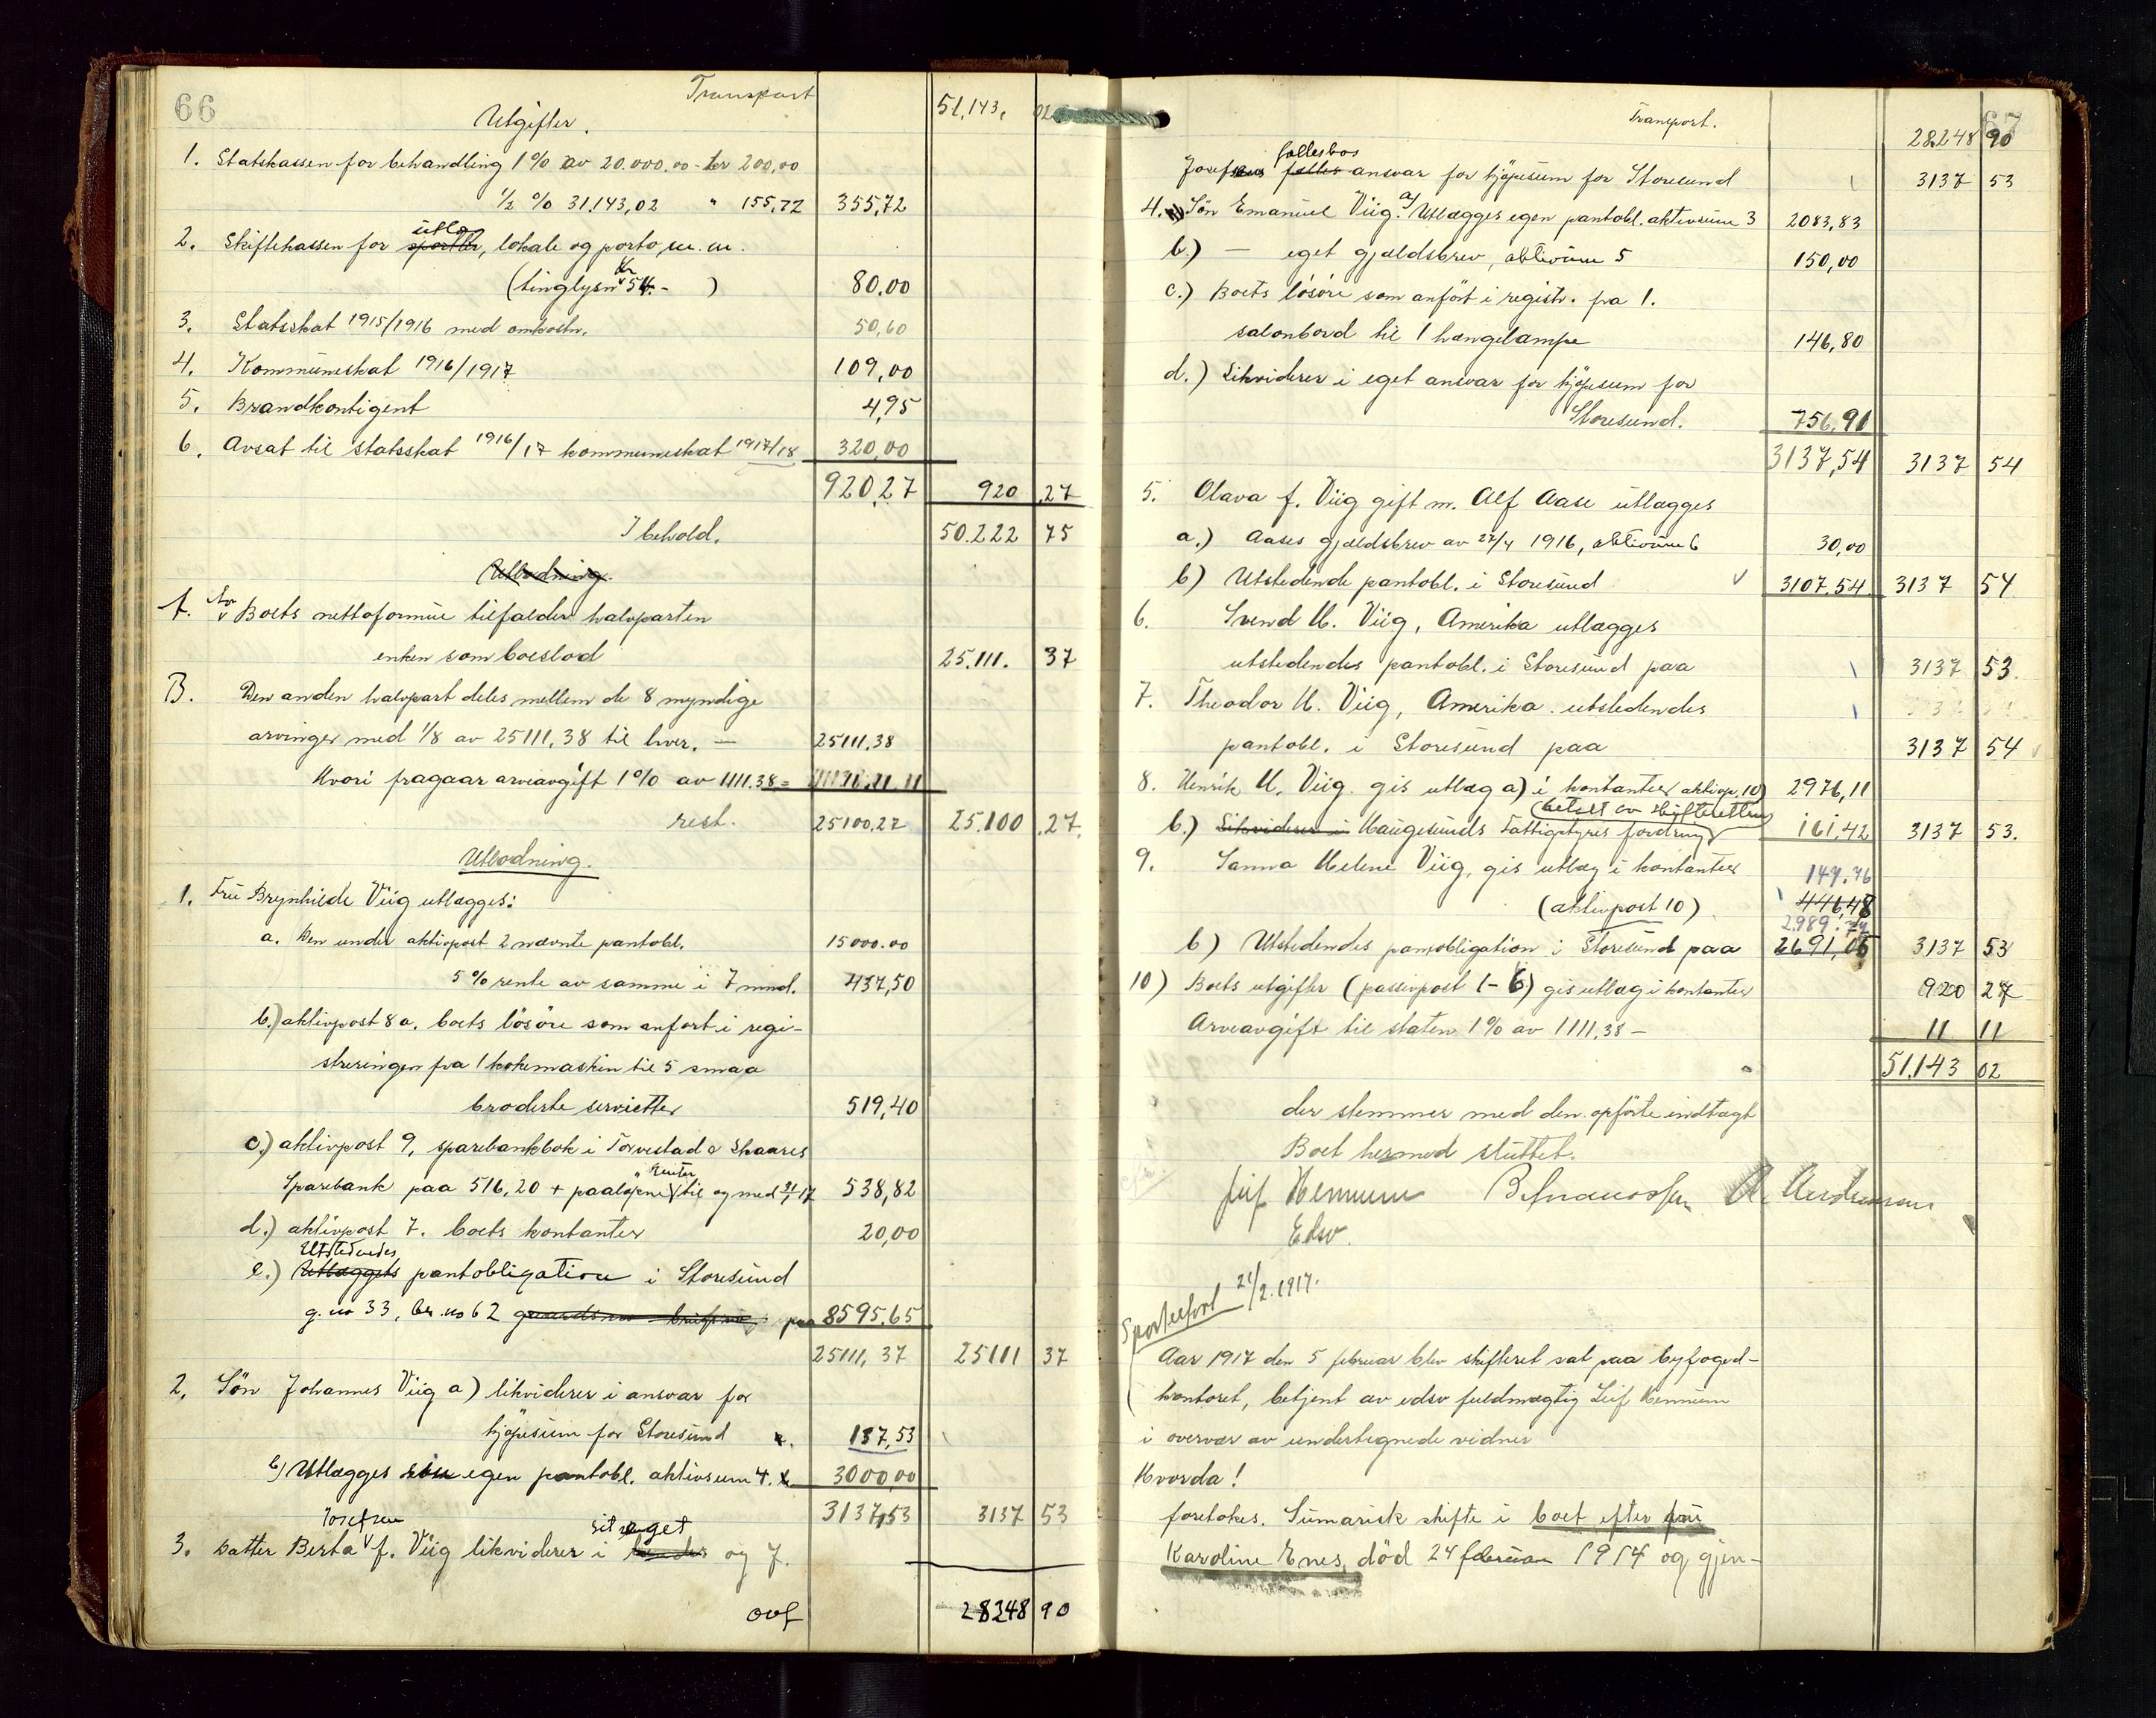 66
Transport 51,143, 02
Utgifter.
1. Statskassen for behandling 1% av 20.000.00 - kr 200,00
½ % 31.143,02 " 155,72 355,72
2. Skiftekassen for sportler, utlæg lokale og porto m. m.
(tinglysn kr 54.- ) 80.00
3. Statsskat 1915/1916 med omkostn. 50,60
4. Kommuneskat 1916/1917 109,00
5. Brandkontigent 4,95
6. Avsat til statsskat 1916/17 kommuneskat 1917/18 320,00
920,27 920,27
I behold. 50.222 75
Utlodning.
A. Av Boets nettoformue tilfalder halvparten
enken som boeslod 25.111. 37
B. Den anden halvpart deles mellem de 8 myndige
arvinger med 1/8 av 25111,38 til hver. — 25111.38
Hvori fragaar arveavgift 1% av 1111.38 = 11.11
rest. 25100.27 25.100 27.
Utlodning.
1. Fru Brynhilde Viig utlægges:
a. Den under aktivpost 2 nævnte pantobl. 15000.00
5% rente av samme i 7 mnd. 437,50
b.) aktivpost 8a. boets lösöre som anfört i regi-
streringen fra 1 kokemaskin til 5 smaa
broderte servietter 519,40
c.) aktivpost 9, sparebankbok i Torvestad & Skaares
Sparebank paa 516,20 + paalöpne renter til og med 31/1 17 538,82
d.) aktivpost 7. boets kontanter 20,00
Utstedendes
e.) Utlægges pantobligation i Storesund
g. no 33, br. no 62 paa 8595.65
25111,37 25111 37
2. Sön Johannes Viig a) likviderer i ansvar for
kjöpesum for Storesund 137,53
b) Utlægges sin egen pantobl. aktivsum 4. 3000,00
3137,53 3137 53
Josefsen sit eget
3. Datter Berta f. Viig likviderer i og J.
ovf 28248 90
67
Transport. 28248 90
fællesbos
Josefsens fælles ansvar for kjöpesum for Storesund 3137 53
4. Sön Emanuel Viig. a) Utlægges egen pantobl. aktivsum 3 2083,83
b.) — eget gjældsbrev, aktivum 5 150,00
c.) Boets lösöre som anfört i registr. fra 1.
salonbord til 1 hængelampe 146,80
d.) Likviderer i eget ansvar for kjöpesum for
Storesund. 756,91
3137,54 3137 54
5. Olava f. Viig gift m. Alf Aase utlægges
a.) Aases gjældsbrev av 22/4 1916, aktivum 6 30,00
b) Utstedende pantobl. i Storesund 3107.54 3137 54
6. Svend H. Viig, Amerika utlægges
utstedendes pantobl. i Storesund paa 3137 53.
7. Theodor H. Viig, Amerika. utstedendes
pantobl. i Storesund paa 3137 54
8. Henrik H. Viig. gis utlæg a) i kontanter aktivp. 10) 2976,11
(betalt av skifteretten)
b.) Likviderer i Haugesunds Fattigstyres fordring 161,42 3137 53.
9. Sanna Helene Viig, gis utlæg i kontanter 149.76
(aktivpost 10) 446,48
2989.74
b) Utstedendes pantobligation i Storesund paa 2691,05 3137 53
10) Boets utgifter (passivpost 1-6) gis utlæg i kontanter 920 27
Arveavgift til staten 1% av 1111,38 — 11 11
51.143 02
der stemmer med den opförte indtægt
Boet hermed sluttet.
Leif Hennum
Edsv.
Sportelfort 21/2. 1917.
Aar 1917 den 5 februar blev skifteret sat paa byfoged-
kontoret, betjent av edsv fuldmægtig Leif Hennum
i overvær av undertegnede vidner
Hvorda!
foretokes. Sumarisk skifte i boet efter fru
Karoline Enes, död 24 februar 1914 og gjen-